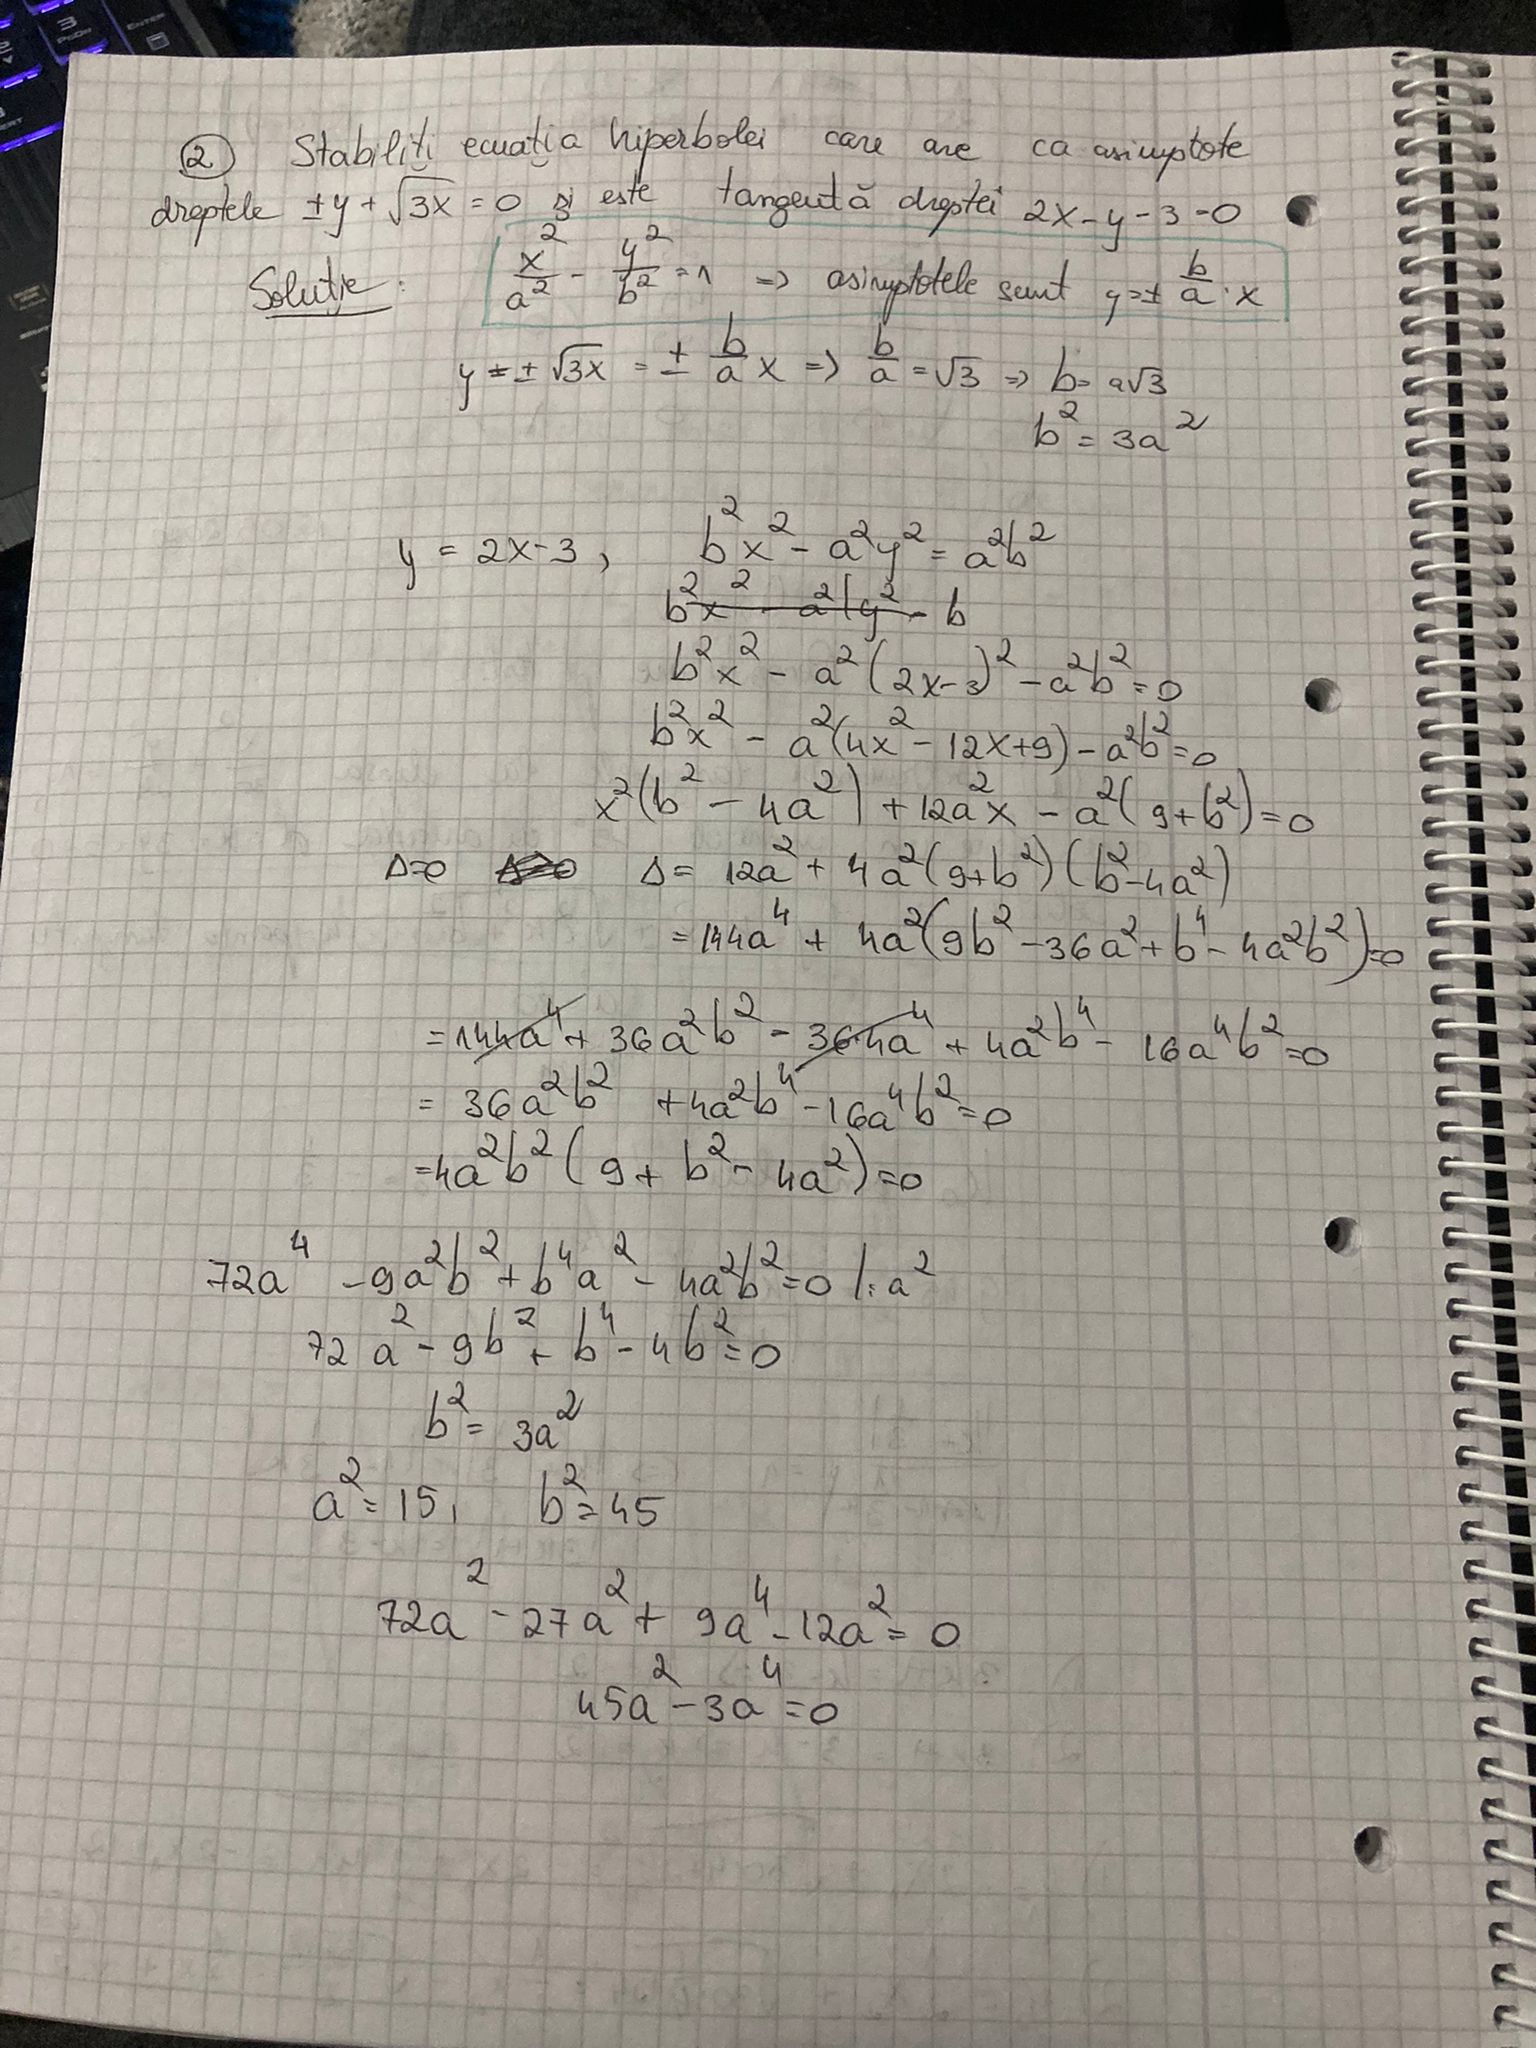 ② Stabiliți ecuația hiperbolei care are ca asimptote
dreptele ±y + √3x = 0 și este tangentă dreptei 2x - y - 3 = 0
Soluție: x²/a² - y²/b² = 1 => asimptotele sunt y = ± b/a · x
y = ± √3x = ± b/a x => b/a = √3 => b = a√3
b² = 3a²
y = 2x-3, b²x² - a²y² = a²b²
b²x² - a²y² - b
b²x² - a²(2x-3)² - a²b² = 0
b²x² - a²(4x² - 12x + 9) - a²b² = 0
x²(b² - 4a²) + 12a²x - a²(9+b²) = 0
Δ=0 Δ = 12a² + 4a²(9+b²)(b²-4a²)
= 144a⁴ + 4a²(9b² - 36a² + b⁴ - 4a²b²) = 0
= 144a⁴ + 36a²b² - 36·4a⁴ + 4a²b⁴ - 16a⁴b² = 0
= 36a²b² + 4a²b⁴ - 16a⁴b² = 0
= 4a²b²(9 + b² - 4a²) = 0
72a⁴ - 9a²b² + b⁴a² - 4a²b² = 0 |: a²
72a² - 9b² + b⁴ - 4b² = 0
b² = 3a²
a² = 15, b² = 45
72a² - 27a² + 9a⁴ - 12a² = 0
45a² - 3a⁴ = 0